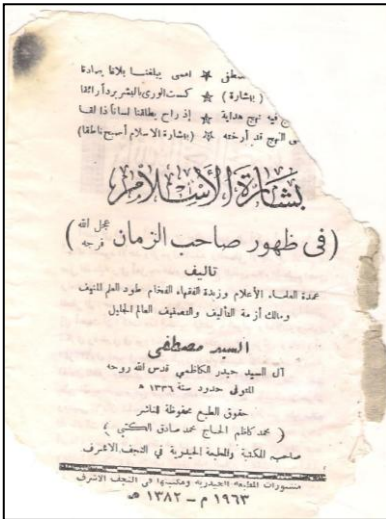 مصطفى ★ امسى يبلغنا بلاغا صادقا
( بشارة ) ★ كست الورى بالبشر بردا رائقا
فيه نهج هداية ★ إذ راح يطلقنا لساناً ذالقا
النهج قد أرخته ★ (بشارة الاسلام أصبح ناطقا)
بشارة الإسلام
(في ظهور صاحب الزمان عجل الله فرجه)
تاليف
عمدة العلماء الأعلام وزبدة الفقهاء الفخام طود العلم المنيف
ومالك أزمة التأليف والتصنيف العالم الجليل
السيد مصطفى
آل السيد حيدر الكاظمي قدس الله روحه
المتوفى حدود سنة ١٣٣٦ ه
حقوق الطبع محفوظة للناشر
( محمد كاظم الحاج محمد صادق الكتبي )
صاحب المكتبة والمطبعة الحيدرية في النجف الاشرف
منشورات المطبعة الحيدرية ومكتبتها في النجف الاشرف
١٩٦٣ م – ١٣٨٢ هـ